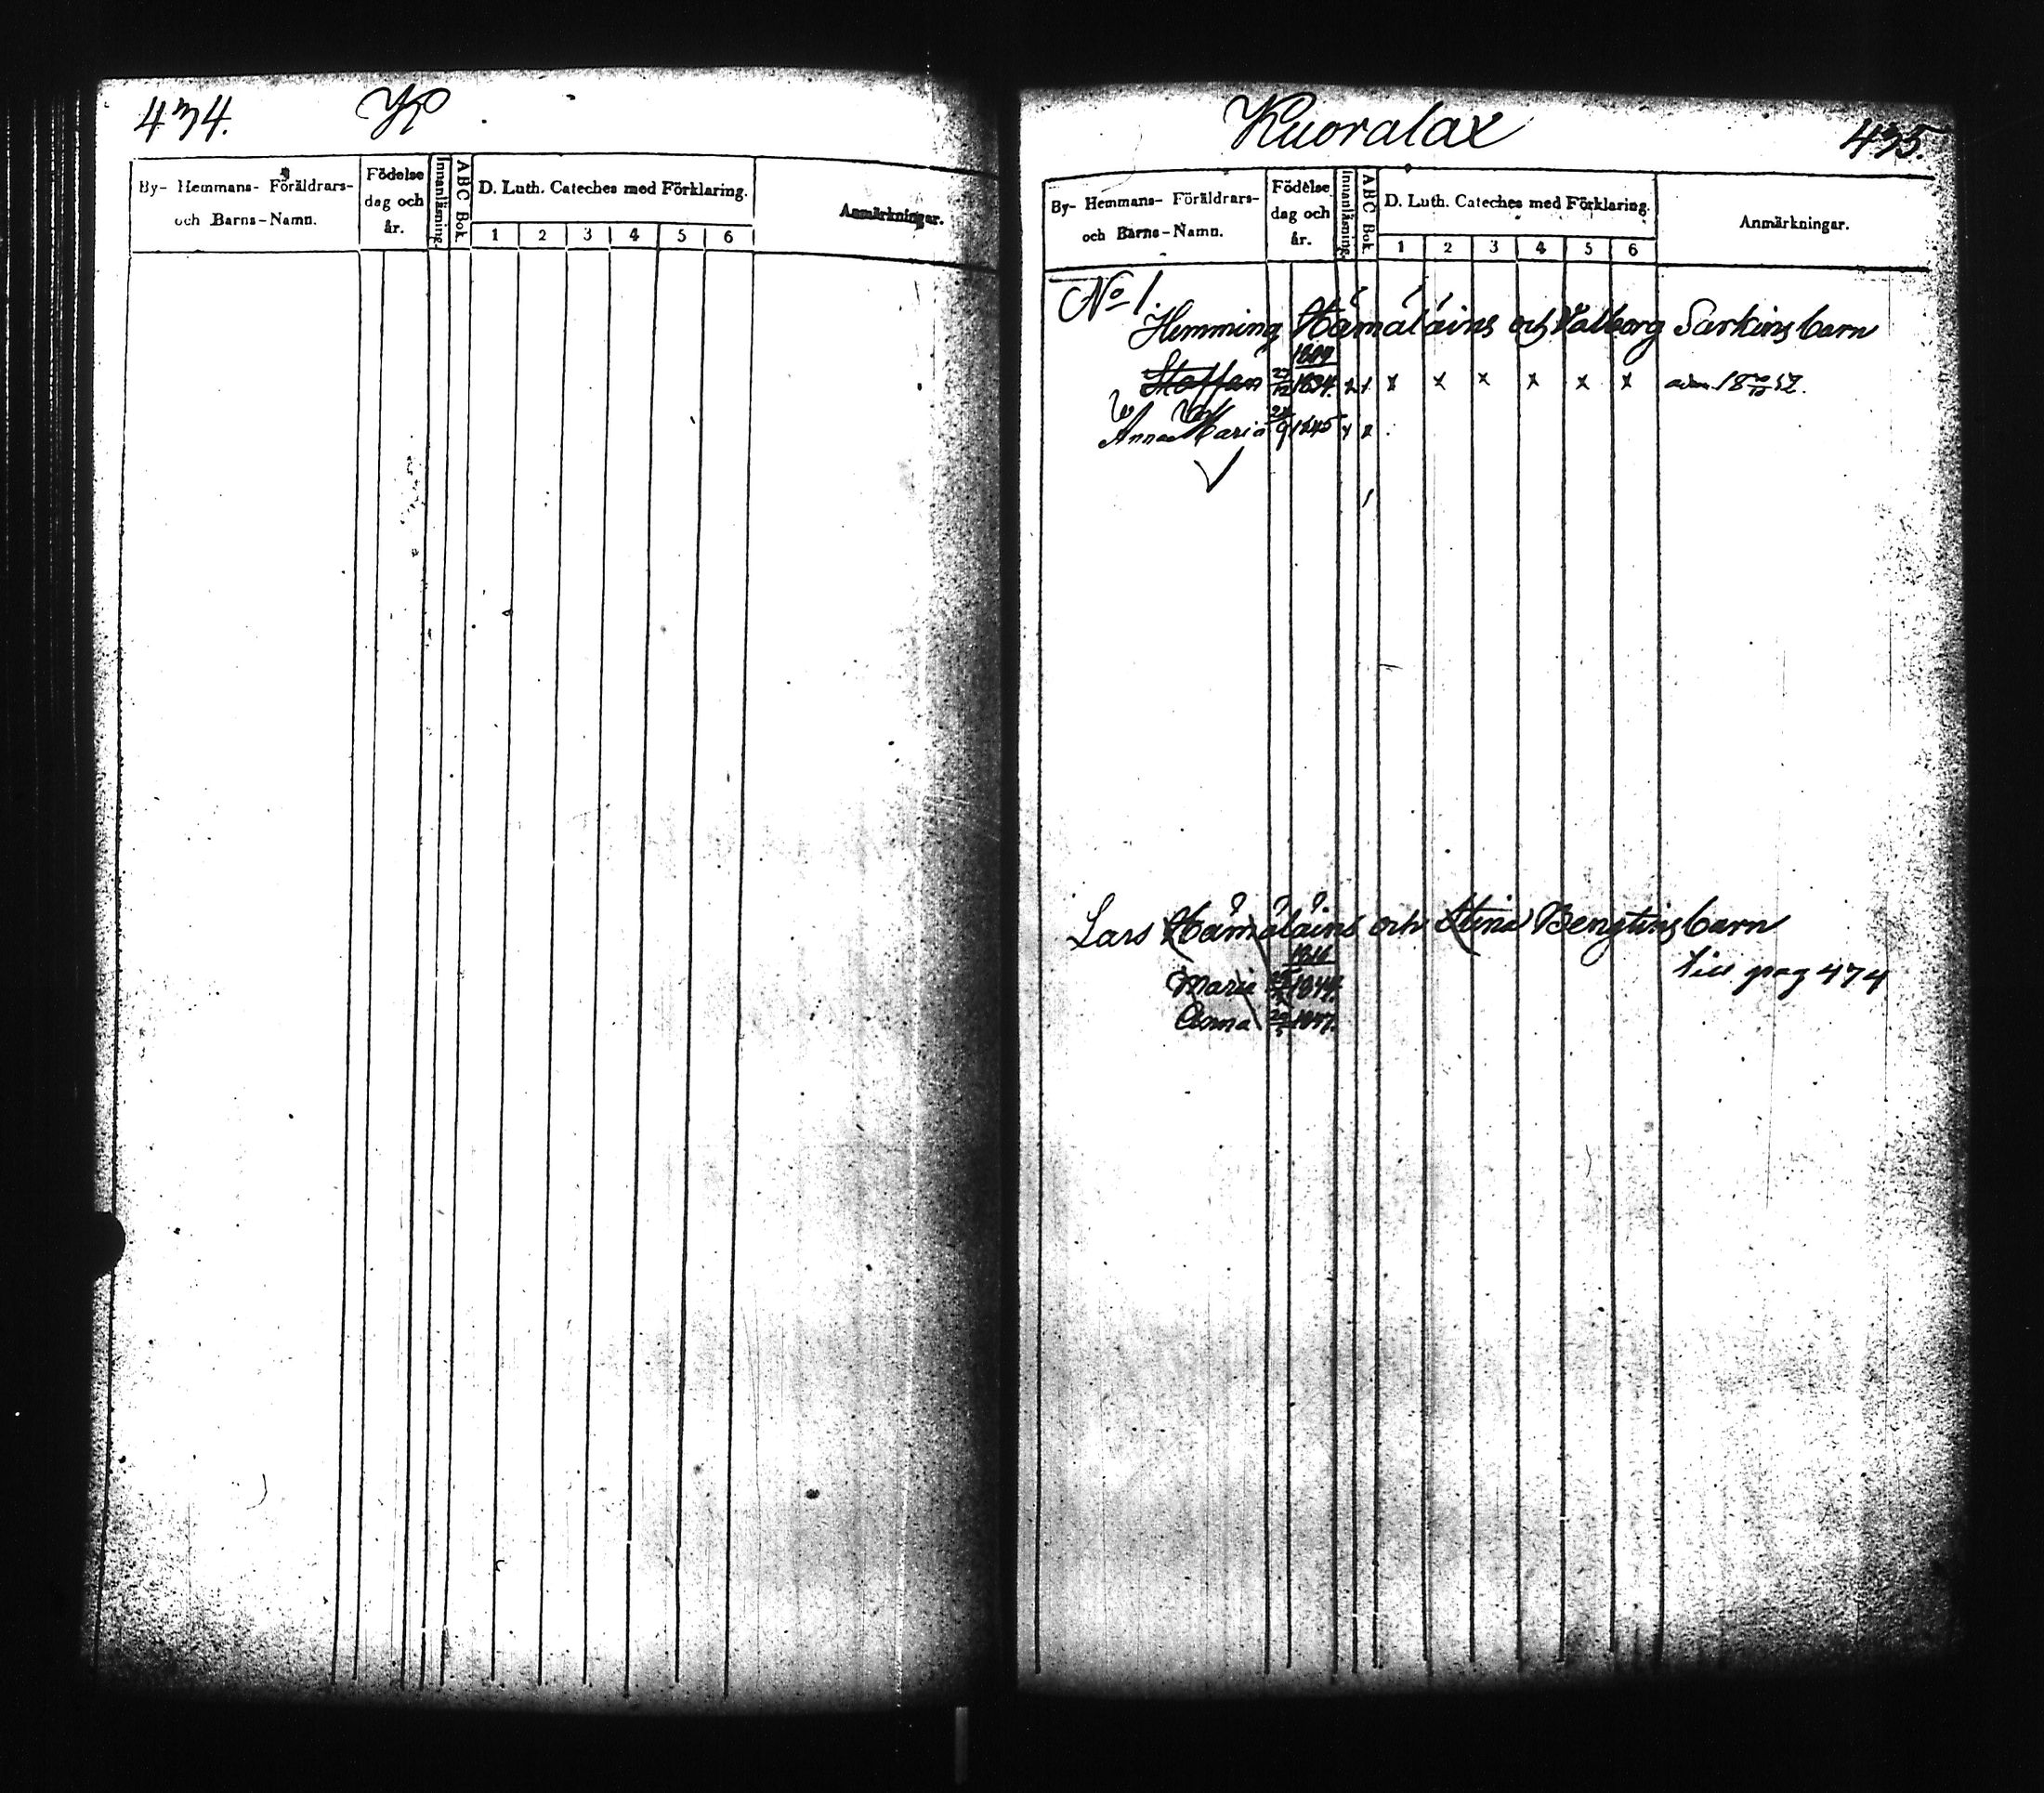 434. K
By- Hemmans- Föräldrars-
och Barns-Namn.
Födelse
dag och
år.
Innanläsning.
ABC Bok.
D. Luth. Cateches med Förklaring.
1 2 3 4 5 6
Anmärkningar.
Kuoralax 435.
By- Hemmans- Föräldrars-
och Barns-Namn.
Födelse
dag och
år.
Innanläsning.
ABC Bok.
D. Luth. Cateches med Förklaring.
1 2 3 4 5 6
Anmärkningar.
No 1.
Hemming Hämäläins och Valborg Sarkins barn
Staffan 1834. x x x x x x
Anna Maria 1845
Lars Hämäläins och Stina Bengtins barn
till pag 474
Maria 1844.
Anna